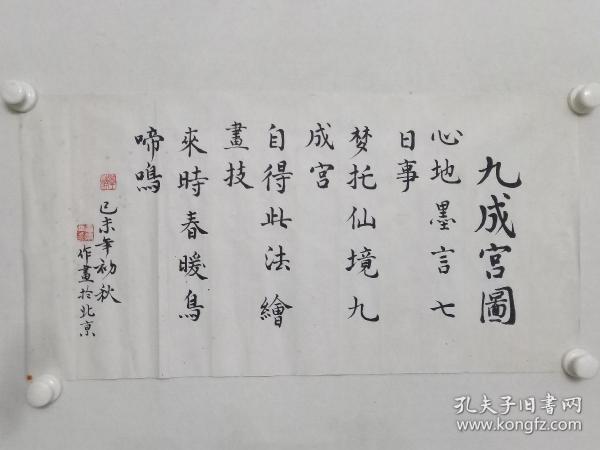 九成宫圖
心地墨言七
日事
梦托仙境九
成宫
自得此法繪
畫技
來時春暖鳥
啼鳴
己未年初秋
作畫於北京
孔夫子旧书网
www.kongfz.com